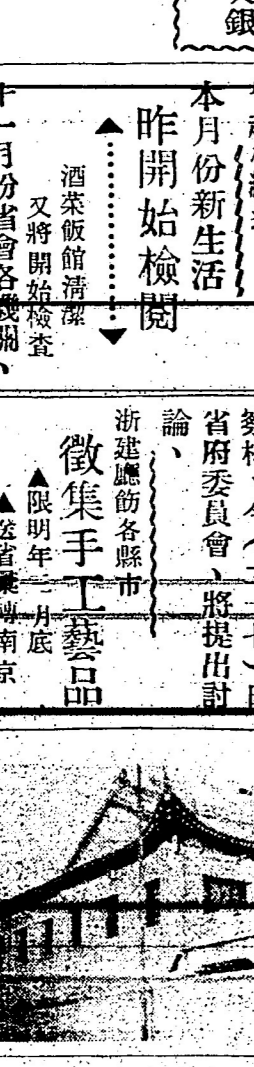 銀
本月份新生活
昨開始檢閱
酒菜飯館清潔
又將開始檢查
十一月份省會各機關、
省府委員會、將提出討
論、
浙建廳飭各縣市
徵集手工藝品
▲限明年二月底
▲送省彙轉南京